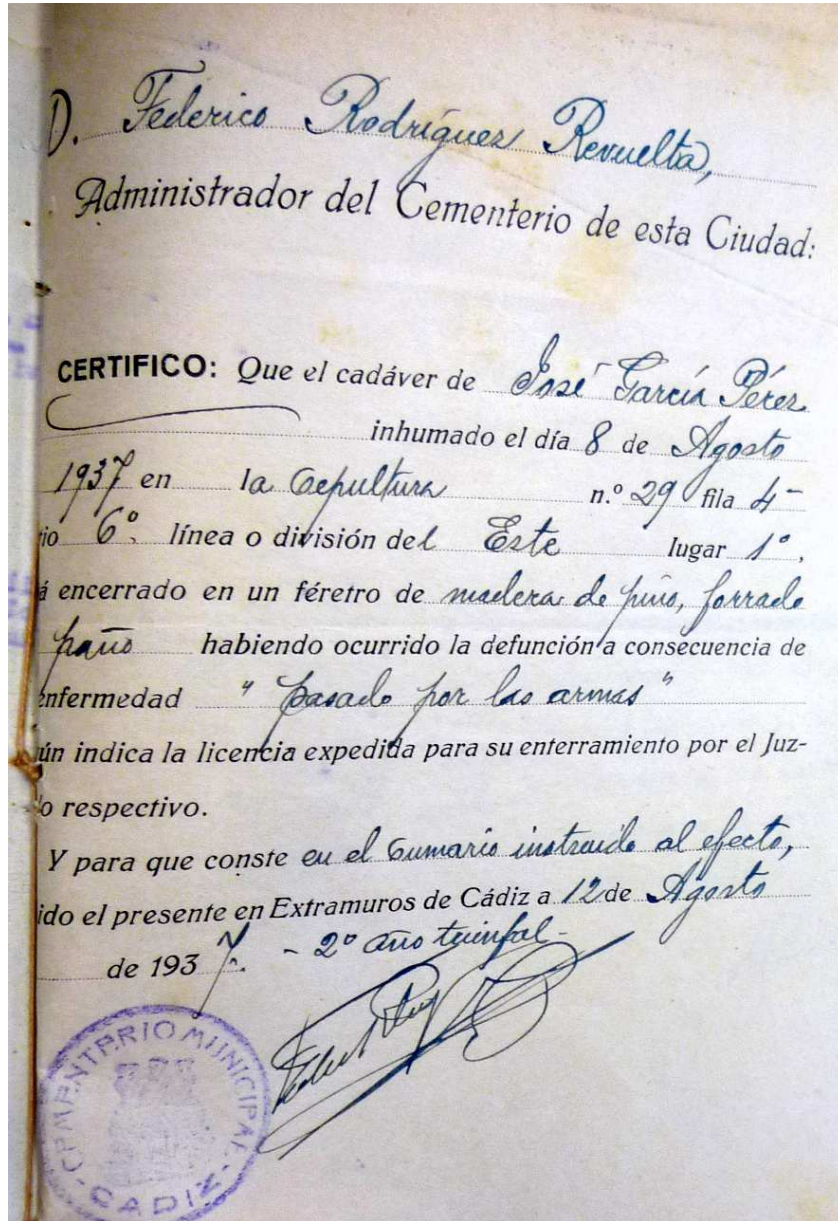 D. Federico Rodríguez Revuelta,
Administrador del Cementerio de esta Ciudad:
CERTIFICO: Que el cadáver de José García Pérez
inhumado el día 8 de Agosto
1937 en la Sepultura n.º 29 fila 4-
io 6º línea o división del Este lugar 1º,
á encerrado en un féretro de madera de pino, forrado
paño habiendo ocurrido la defunción a consecuencia de
enfermedad "pasado por las armas"
ún indica la licencia expedida para su enterramiento por el Juz-
o respectivo.
Y para que conste en el Sumario instruido al efecto,
ido el presente en Extramuros de Cádiz a 12 de Agosto
de 1937. - 2º año triunfal-
CEMENTERIO MUNICIPAL
- CADIZ -